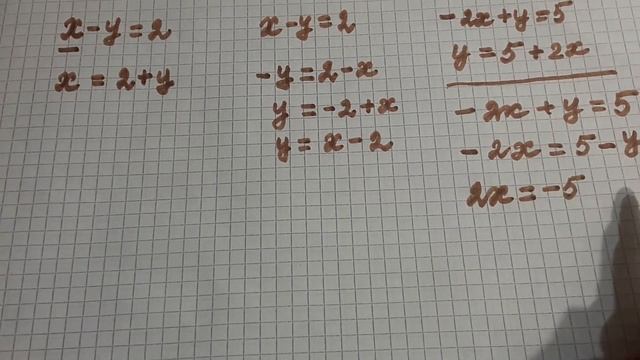 x - y = 2
x = 2 + y
x - y = 2
- y = 2 - x
y = -2 + x
y = x - 2
- 2x + y = 5
y = 5 + 2x
- 2x + y = 5
- 2x = 5 - y
2x = -5